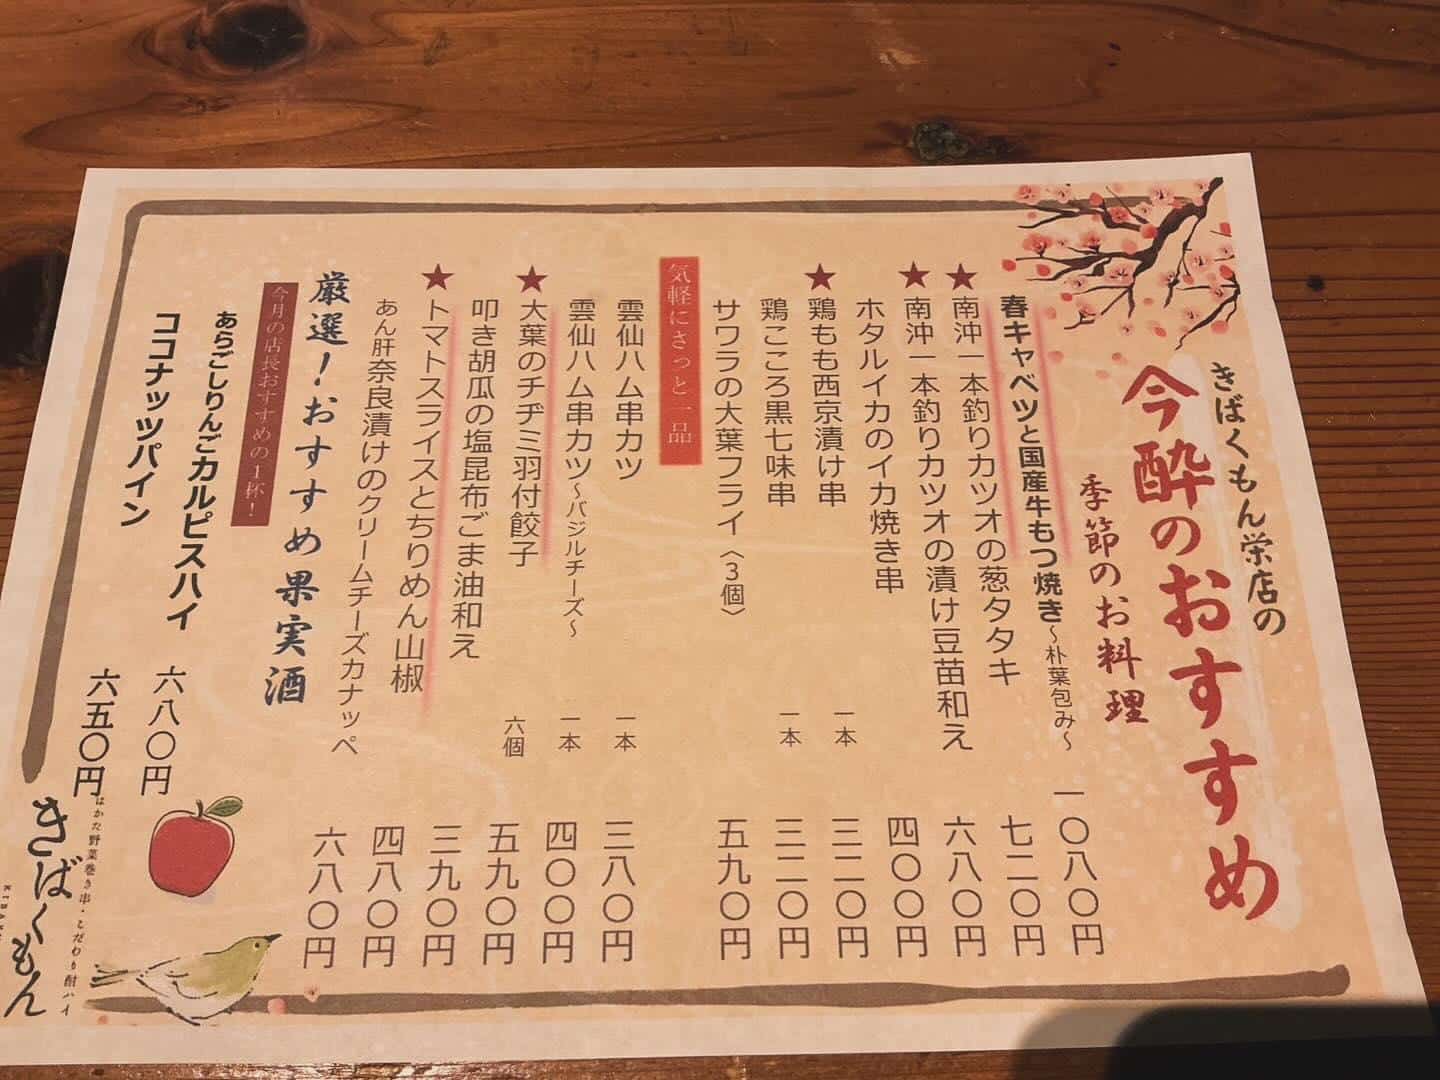 きばくもん栄店の
今酔のおすすめ
季節のお料理
春キャベツと国産牛もつ焼き～朴葉包み～ 一〇八〇円
★南沖一本釣りカツオの葱タタキ 七二〇円
★南沖一本釣りカツオの漬け豆苗和え 六八〇円
ホタルイカのイカ焼き串 四〇〇円
★鶏もも西京漬け串 一本 三二〇円
鶏こころ黒七味串 一本 三二〇円
サワラの大葉フライ〈3個〉 五九〇円
気軽にさっと一品
雲仙ハム串カツ 一本 三八〇円
雲仙ハム串カツ～バジルチーズ～ 一本 四〇〇円
★大葉のチヂミ羽付餃子 六個 五九〇円
叩き胡瓜の塩昆布ごま油和え 三九〇円
★トマトスライスとちりめん山椒 四八〇円
あん肝奈良漬けのクリームチーズカナッペ 六八〇円
厳選！おすすめ果実酒
今月の店長おすすめの1杯！
あらごしりんごカルピスハイ 六八〇円
ココナッツパイン 六五〇円
はかた野菜巻き串・こだわり酎ハイ
きばくもん